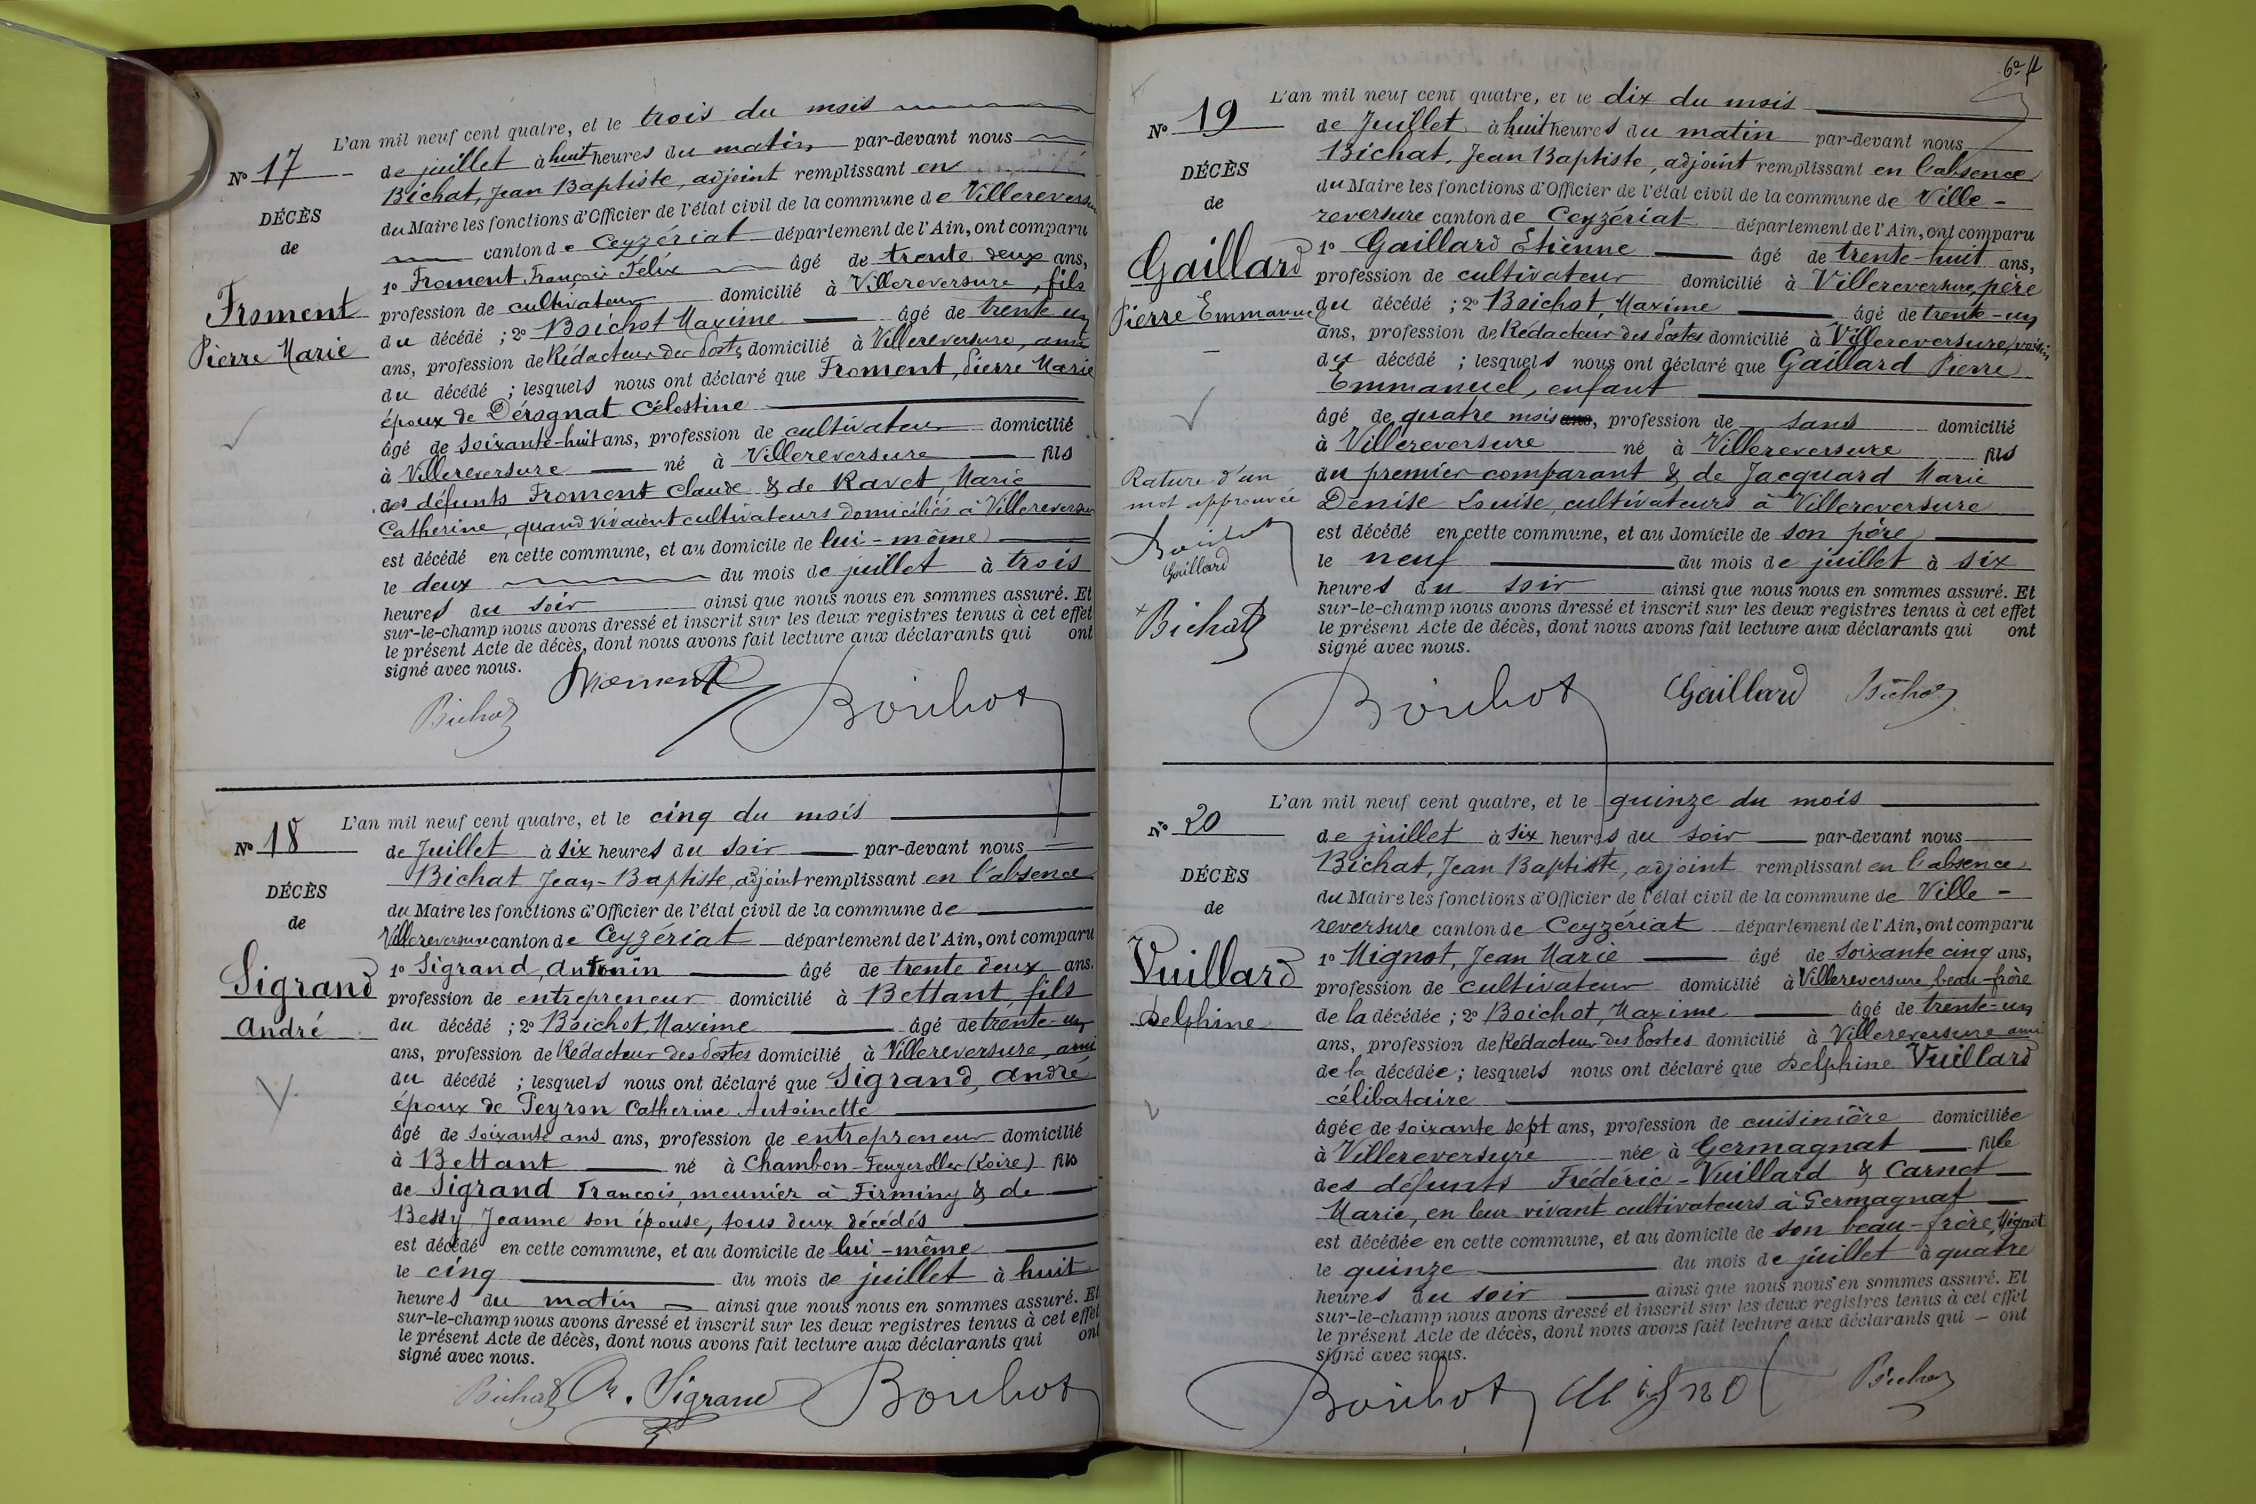 L'an mil neuf cent quatre, et le trois du mois
No 17
de juillet à huit heures du matin par-devant nous
Bichat, Jean Baptiste, adjoint remplissant en
DÉCÈS
du Maire les fonctions d'Officier de l'état civil de la commune de Villereversure
de
canton de Ceyzériat département de l'Ain, ont comparu
1o Froment François Félix âgé de trente deux ans,
Froment
profession de cultivateur domicilié à Villereversure, fils
Pierre Marie
du décédé ; 2o Boichot Maxime âgé de trente un
ans, profession de Rédacteur des Postes domicilié à Villereversure, ami
du décédé ; lesquels nous ont déclaré que Froment, Pierre Marie
époux de Dérognat Célestine
âgé de soixante-huit ans, profession de cultivateur domicilié
à Villereversure né à Villereversure fils
des défunts Froment Claude & de Ravet, Marie
Catherine, quand vivaient cultivateurs domiciliés à Villereversure
est décédé en cette commune, et au domicile de lui-même
le deux du mois de juillet à trois
heures du soir ainsi que nous nous en sommes assuré. Et
sur-le-champ nous avons dressé et inscrit sur les deux registres tenus à cet effet
le présent Acte de décès, dont nous avons fait lecture aux déclarants qui ont
signé avec nous.
Bichat Froment Boichot
L'an mil neuf cent quatre, et le cinq du mois
No 18
de Juillet à six heures du soir par-devant nous
Bichat Jean-Baptiste, adjoint remplissant en l'absence
DÉCÈS
du Maire les fonctions d'Officier de l'état civil de la commune de
de
Villereversure canton de Ceyzériat département de l'Ain, ont comparu
1o Sigrand, Antonin âgé de trente deux ans.
Sigrand
profession de entrepreneur domicilié à Bettant, fils
André
du décédé ; 2o Boichot, Maxime âgé de trente-un
ans, profession de Rédacteur des Postes domicilié à Villereversure, ami
du décédé ; lesquels nous ont déclaré que Sigrand, André
époux de Peyron Catherine Antoinette
âgé de soixante ans ans, profession de entrepreneur domicilié
à Bettant né à Chambon-Feugerolles (Loire) fils
de Sigrand François, meunier à Firminy & de
Bessy Jeanne son épouse, tous deux décédés
est décédé en cette commune, et au domicile de lui-même
le cinq du mois de juillet à huit
heures du matin ainsi que nous nous en sommes assuré. Et
sur-le-champ nous avons dressé et inscrit sur les deux registres tenus à cet effet
le présent Acte de décès, dont nous avons fait lecture aux déclarants qui ont
signé avec nous.
Bichat A. Sigrand Boichot
L'an mil neuf cent quatre, et le dix du mois
No 19
de Juillet à huit heures du matin par-devant nous
Bichat, Jean Baptiste, adjoint remplissant en l'absence
DÉCÈS
du Maire les fonctions d'Officier de l'état civil de la commune de Ville-
de
reversure canton de Ceyzériat département de l'Ain, ont comparu
1o Gaillard Etienne âgé de trente-huit ans,
Gaillard
profession de cultivateur domicilié à Villereversure, père
Pierre Emmanuel
du décédé ; 2o Boichot, Maxime âgé de trente-un
ans, profession de Rédacteur des Postes domicilié à Villereversure, voisin
du décédé ; lesquels nous ont déclaré que Gaillard Pierre
Emmanuel, enfant
âgé de quatre mois ans, profession de sans domicilié
à Villereversure né à Villereversure fils
du premier comparant & de Jacquard Marie
Denise Louise, cultivateurs à Villereversure
Rature d'un
mot approuvée
Boichot
Gaillard
Bichat
est décédé en cette commune, et au domicile de son père
le neuf du mois de juillet à six
heures du soir ainsi que nous nous en sommes assuré. Et
sur-le-champ nous avons dressé et inscrit sur les deux registres tenus à cet effet
le présent Acte de décès, dont nous avons fait lecture aux déclarants qui ont
signé avec nous.
Boichot Gaillard Bichat
L'an mil neuf cent quatre, et le quinze du mois
No 20
de juillet à six heures du soir par-devant nous
Bichat, Jean Baptiste, adjoint remplissant en l'absence
DÉCÈS
du Maire les fonctions d'Officier de l'état civil de la commune de Ville-
de
reversure canton de Ceyzériat département de l'Ain, ont comparu
1o Mignot, Jean Marie âgé de soixante cinq ans,
Vuillard
profession de cultivateur domicilié à Villereversure, beau-frère
Delphine
de la décédée ; 2o Boichot, Maxime âgé de trente-un
ans, profession de Rédacteur des Postes domicilié à Villereversure ami
de la décédée ; lesquels nous ont déclaré que Delphine Vuillard
célibataire
âgée de soixante sept ans, profession de cuisinière domiciliée
à Villereversure née à Germagnat fille
des défunts Frédéric-Vuillard & Carnet
Marie, en leur vivant cultivateurs à Germagnat
est décédée en cette commune, et au domicile de son beau-frère, Mignot
le quinze du mois de juillet à quatre
heures du soir ainsi que nous nous en sommes assuré. Et
sur-le-champ nous avons dressé et inscrit sur les deux registres tenus à cet effet
le présent Acte de décès, dont nous avons fait lecture aux déclarants qui - ont
signé avec nous.
Boichot Mignot Bichat